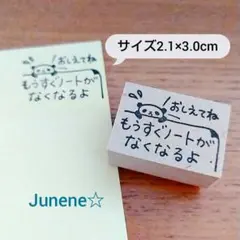 サイズ2.1×3.0cm
おしえてね
もうすぐノートが
なくなるよ
おしえてね
もうすぐノートが
なくなるよ
Junene☆